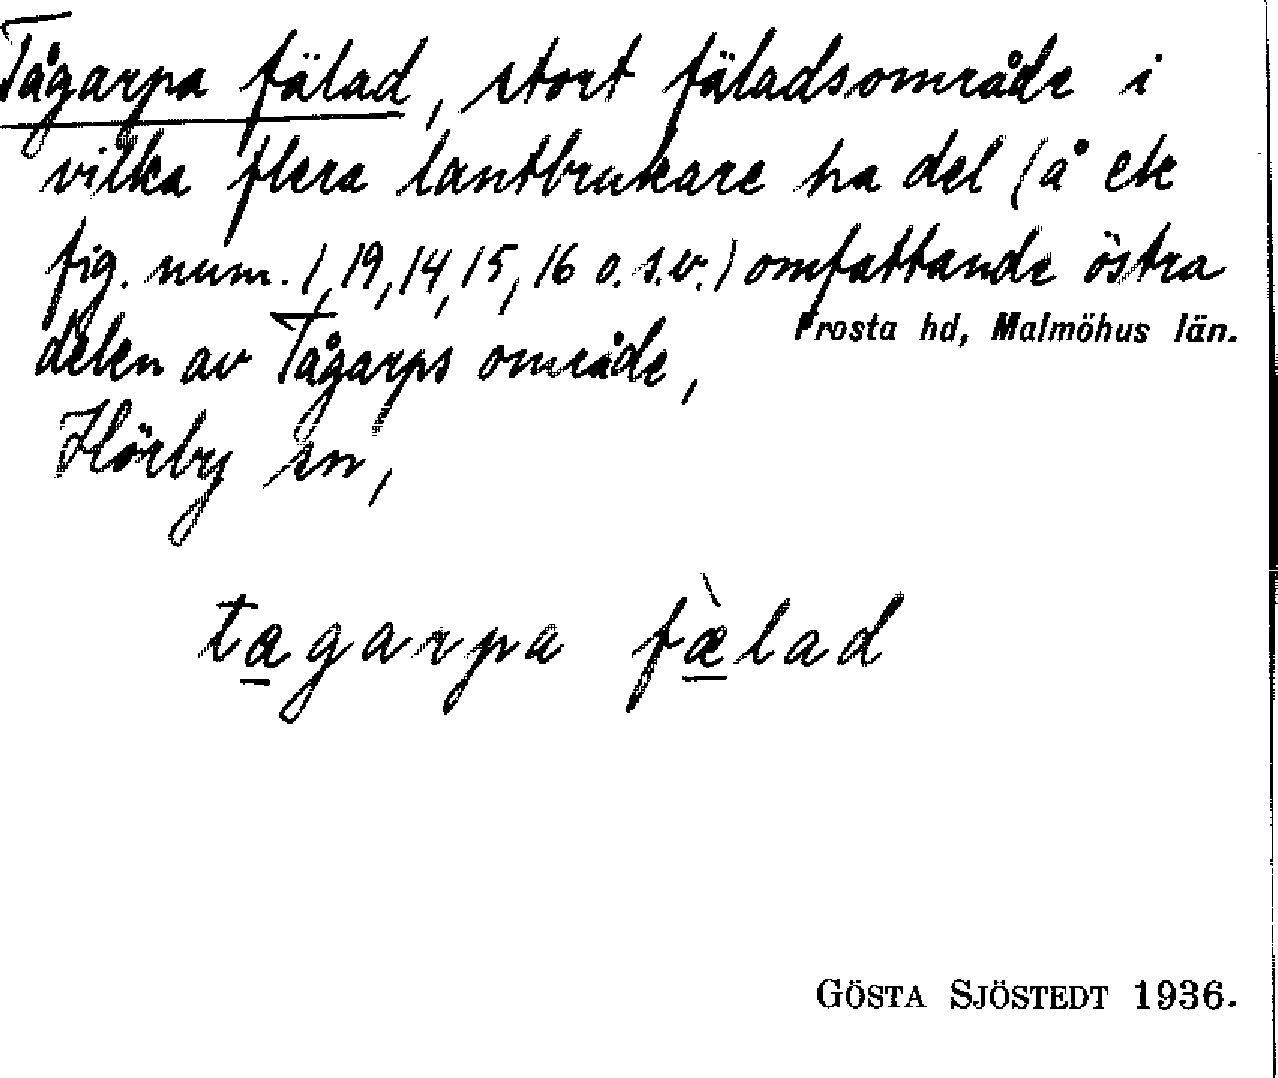 Tågarpa fälad, stort fäladsområde i
vilka flera lantbrukare ha del (å ek
fig. num. 1, 19, 14, 15, 16 o.s.v.) omfattande östra
delen av Tågarps område,
Frosta hd, Malmöhus län.
Hörby sn,
tagarpa fælad
GÖSTA SJÖSTEDT 1936.